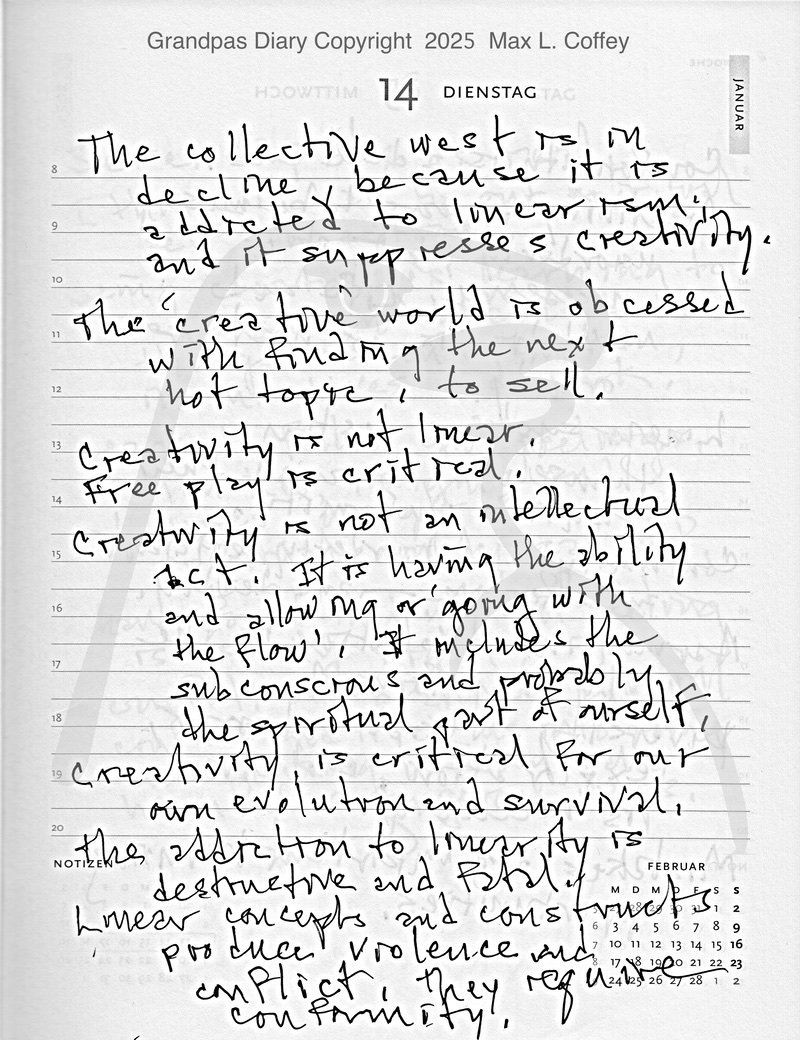 Grandpas Diary Copyright 2025 Max L. Coffey
14 DIENSTAG
JANUAR
The collective west is in
decline, because it is
addicted to linearism.
and it suppresses creativity.
The 'creative' world is obcessed
with finding the next
hot topic, to sell.
Creativity is not linear.
Free play is critical.
Creativity is not an intellectual
act. It is having the ability
and allowing or 'going with
the flow'. It includes the
subconscious and probably
the spiritual part of ourself,
Creativity is critical for our
own evolution and survival.
The addiction to linearity is
destructive and fatal.
Linear concepts and constructs
produce violence and
conflict, they require
conformity.
8
9
10
11
12
13
14
15
16
17
18
19
20
NOTIZEN
FEBRUAR
M D M D F S S
5 27 28 29 30 31 1 2
6 3 4 5 6 7 8 9
7 10 11 12 13 14 15 16
8 17 18 19 20 21 22 23
9 24 25 26 27 28 1 2